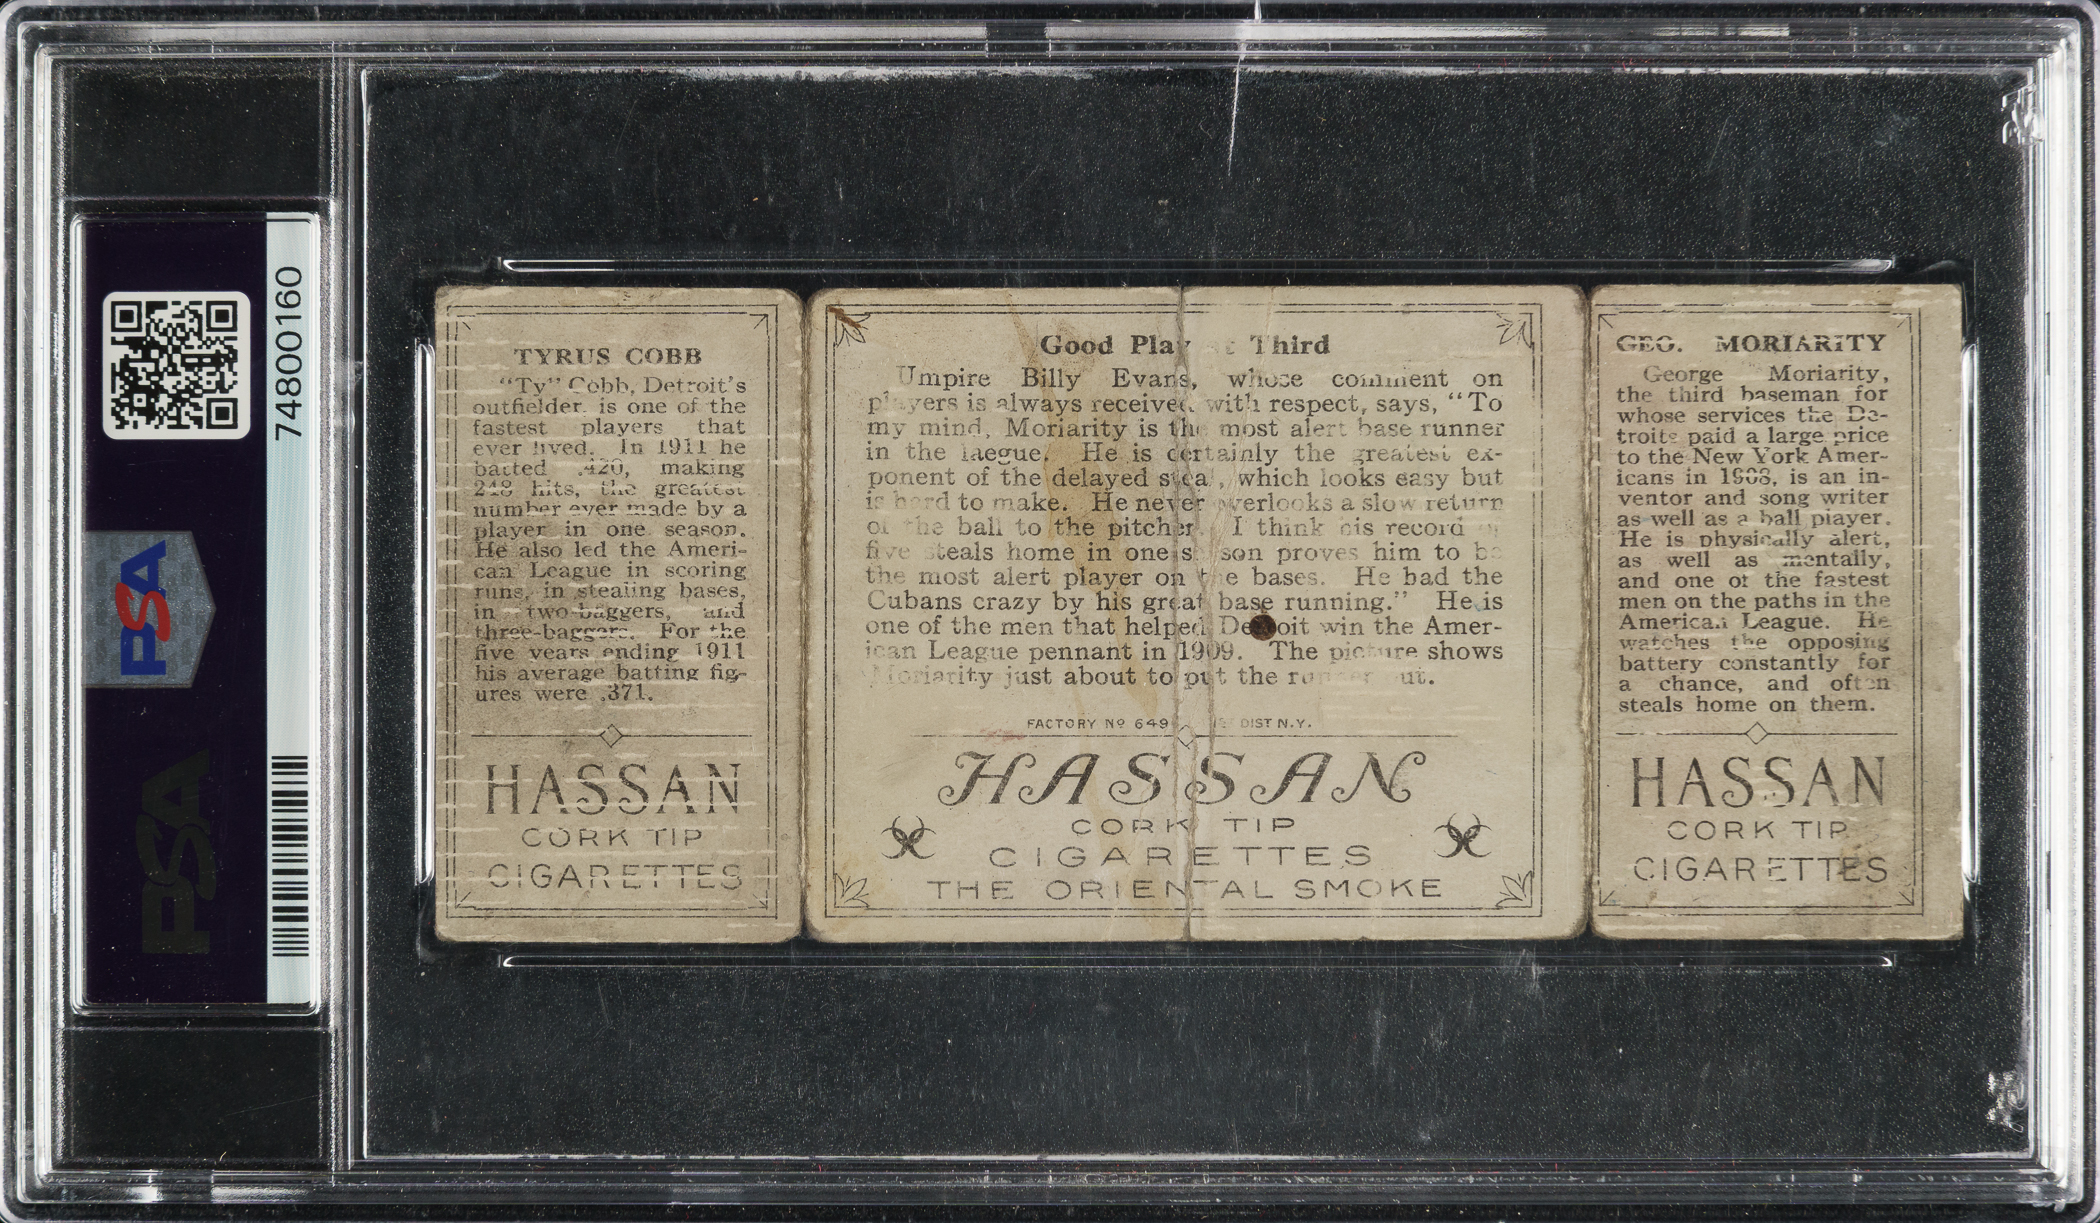 74800160
PSA
PSA
TYRUS COBB
"Ty" Cobb, Detroit's
outfielder, is one of the
fastest players that
ever lived. In 1911 he
batted .420, making
248 hits, the greatest
number ever made by a
player in one season.
He also led the Ameri-
can League in scoring
runs, in stealing bases,
in two-baggers, and
three-baggers. For the
five years ending 1911
his average batting fig-
ures were .371.
HASSAN
CORK TIP
CIGARETTES
Good Play Third
Umpire Billy Evans, whose comment on
players is always received with respect, says, "To
my mind, Moriarity is the most alert base runner
in the laegue. He is certainly the greatest ex-
ponent of the delayed steal, which looks easy but
is hard to make. He never overlooks a slow return
of the ball to the pitcher. I think his record of
five steals home in one season proves him to be
the most alert player on the bases. He had the
Cubans crazy by his great base running." He is
one of the men that helped Detroit win the Amer-
ican League pennant in 1909. The picture shows
Moriarity just about to put the runner out.
FACTORY Nº 649 DIST N.Y.
HASSAN
CORK TIP
CIGARETTES
THE ORIENTAL SMOKE
GEO. MORIARITY
George Moriarity,
the third baseman for
whose services the De-
troits paid a large price
to the New York Amer-
icans in 1908, is an in-
ventor and song writer
as well as a ball player.
He is physically alert,
as well as mentally,
and one of the fastest
men on the paths in the
American League. He
watches the opposing
battery constantly for
a chance, and often
steals home on them.
HASSAN
CORK TIP
CIGARETTES